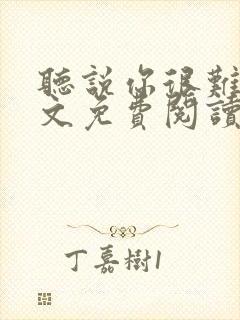 聽說你很難
文免費閱讀
丁嘉樹1